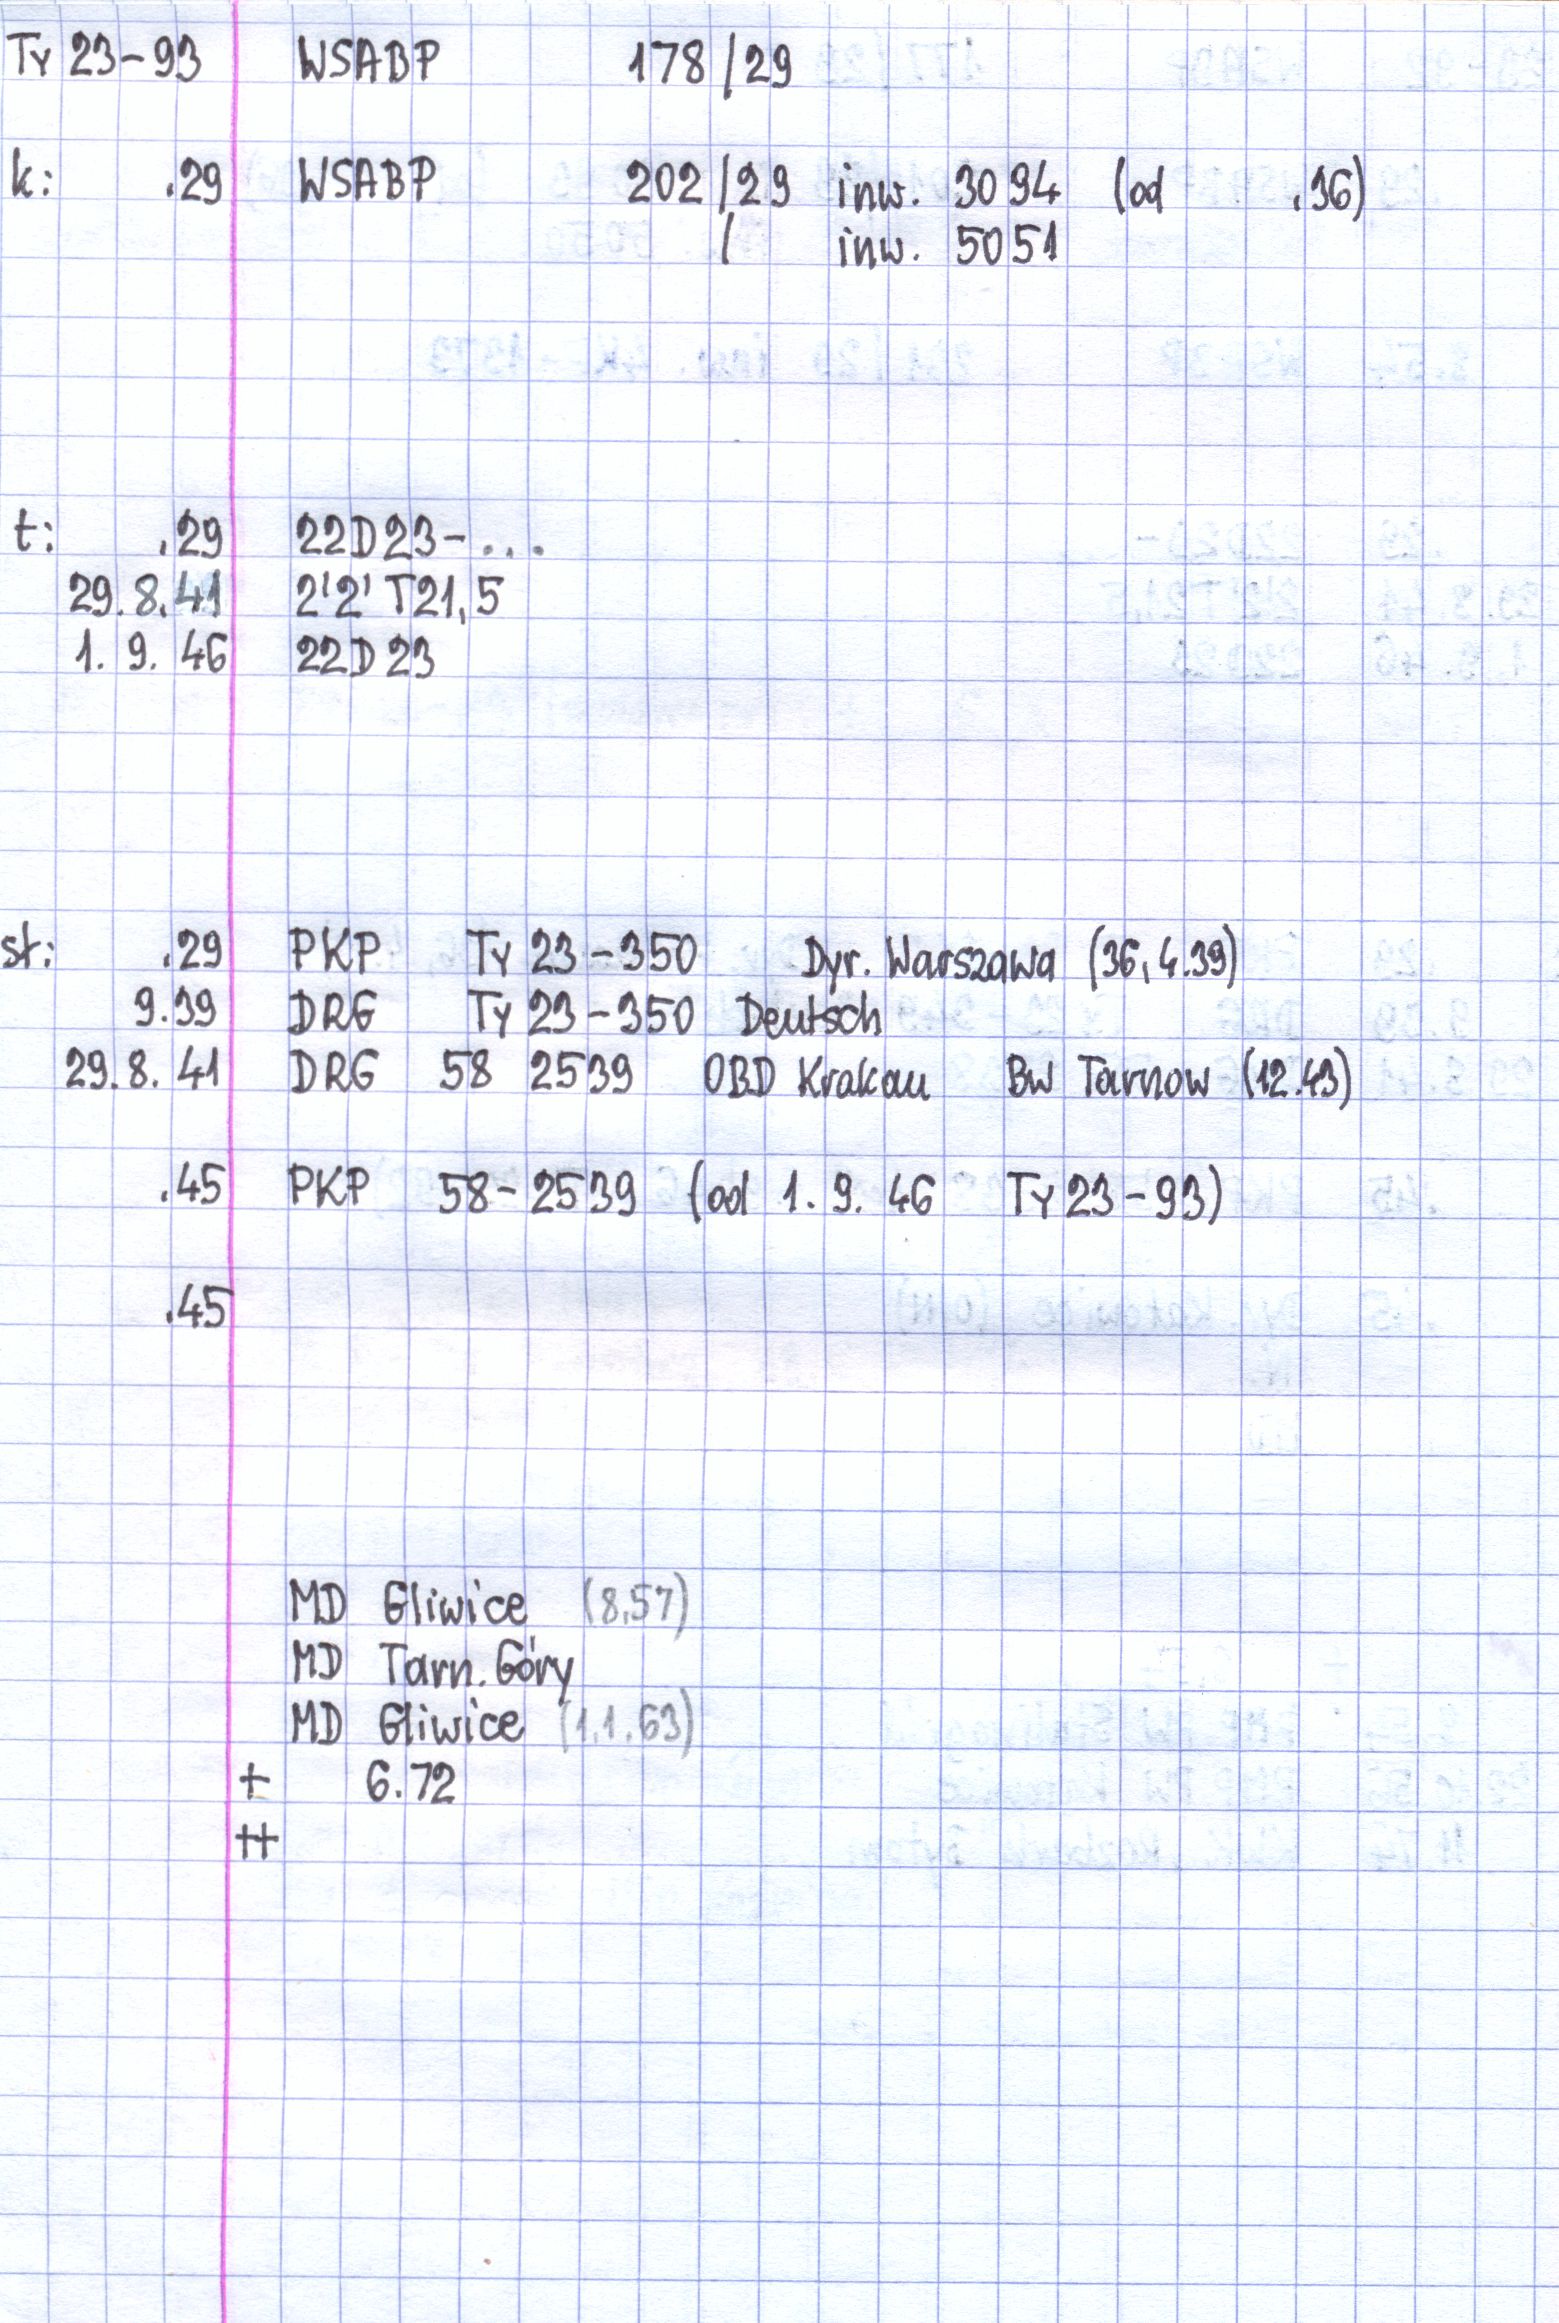 Ty 23-93 WSABP 178/29
k: .29 WSABP 202/29 inw. 3094 (od .36)
/ inw. 5051
t: .29 22D23-...
29.8.41 2'2' T21,5
1. 9. 46 22D23
st: .29 PKP Ty 23-350 Dyr. Warszawa (36, 4.39)
9.39 DRG Ty 23-350 Deutsch
29.8. 41 DRG 58 2539 OBD Krakau BW Tarnow (12.43)
.45 PKP 58-2539 (od 1. 9. 46 Ty 23-93)
.45
MD Gliwice (8.57)
MD Tarn. Góry
MD Gliwice (1.1.63)
+ 6.72
++